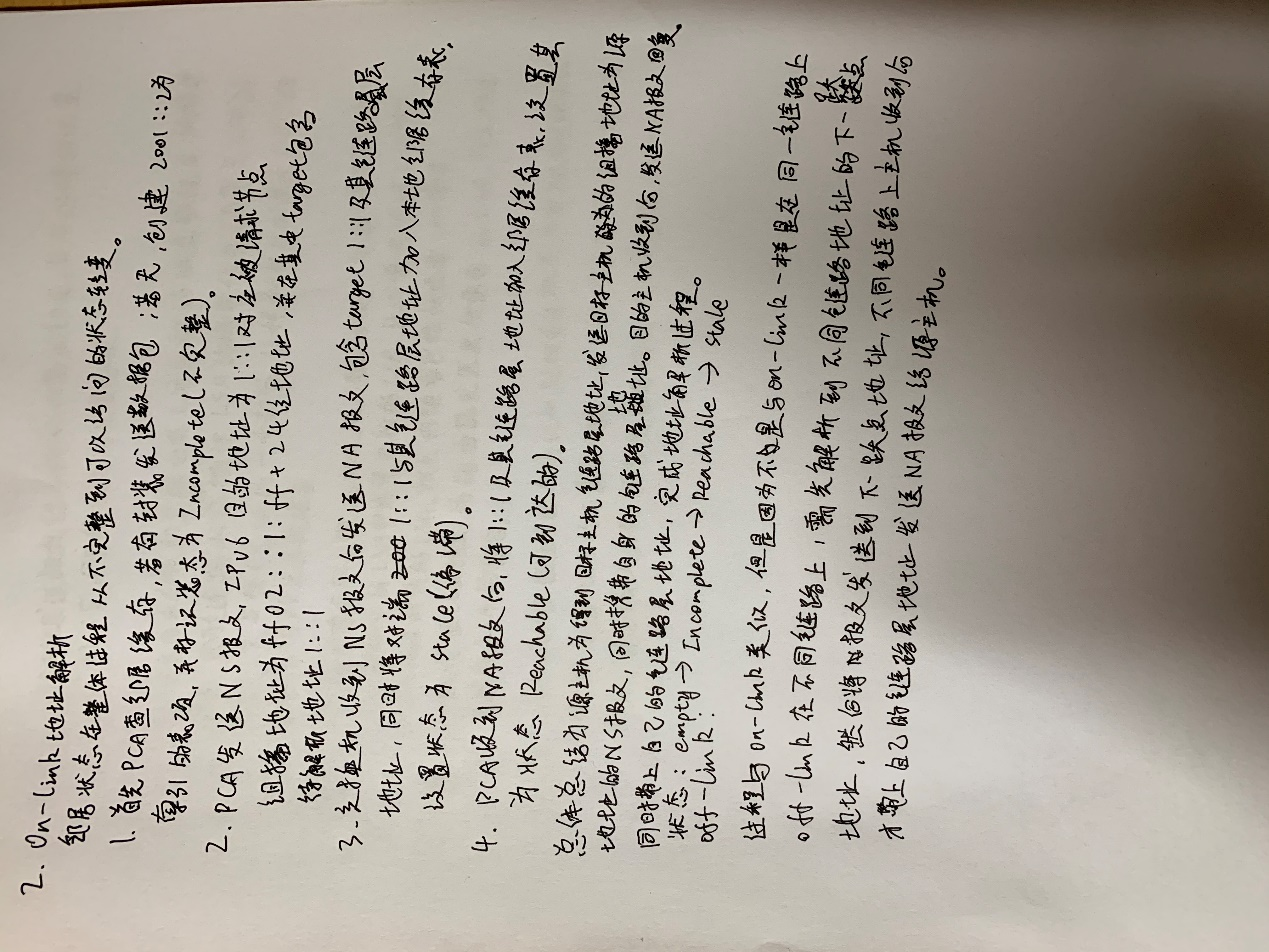 2. On-link 地址解析
邻居状态在整体过程从不完整到可以访问的状态转变。
1. 首先PCA查邻居缓存,若有封装发送数据包;若无,创建2001::2为
索引的表项,并标识态为Incomplete(不完整)。
2. PCA发送NS报文,IPv6目的地址为1::1对应被请求节点
组播地址为ff02::1:ff+24位地址,并在其中target包含
待解析地址1::1
3. 交换机收到NS报文后发送NA报文,包含target 1::1及其链路层
地址,同时将对端 1::1与其链路层地址加入本地邻居缓存表,
设置状态为 stale(传满)。
4. PCA收到NA报文后,将1::1及其链路层地址加入邻居缓存表,设置其
为状态 Reachable(可到达的)。
总体总结为源主机为得到目标主机链路层地址,发送目标主机 的组播地址为源
地址的NS报文,同时携带自身的链路层地址。目的主机收到后,发送NA报文回复
同时带上自己的链路层地址,完成地址解析过程。
状态:empty→Incomplete→Reachable→stale
off-link:
过程与on-link类似,但是因为不是与on-link一样是在同一链路上
off-link在不同链路上,需先解析到不同链路地址的下一跃点
地址,然后将NS报文发送到下一跃点地址,不同链路上主机收到后
才带上自己的链路层地址发送NA报文给源主机。